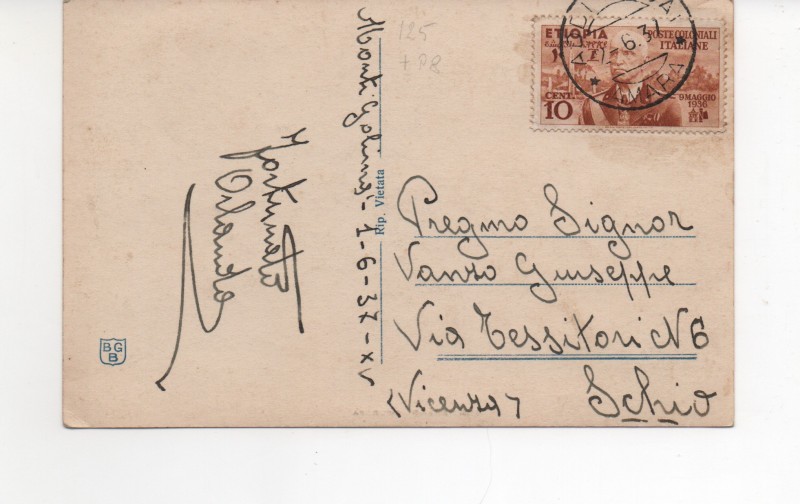 125
ETIOPIA
POSTE COLONIALI
ITALIANE
CENT.
10
9 MAGGIO
1936
6.37
AMARA
Rip. Vietata
1-6-37-XV
Fortunato
Orlando
Pregmo Signor
Vanzo Giuseppe
Via Tessitori N 6
Schio
(Vicenza)
BGB